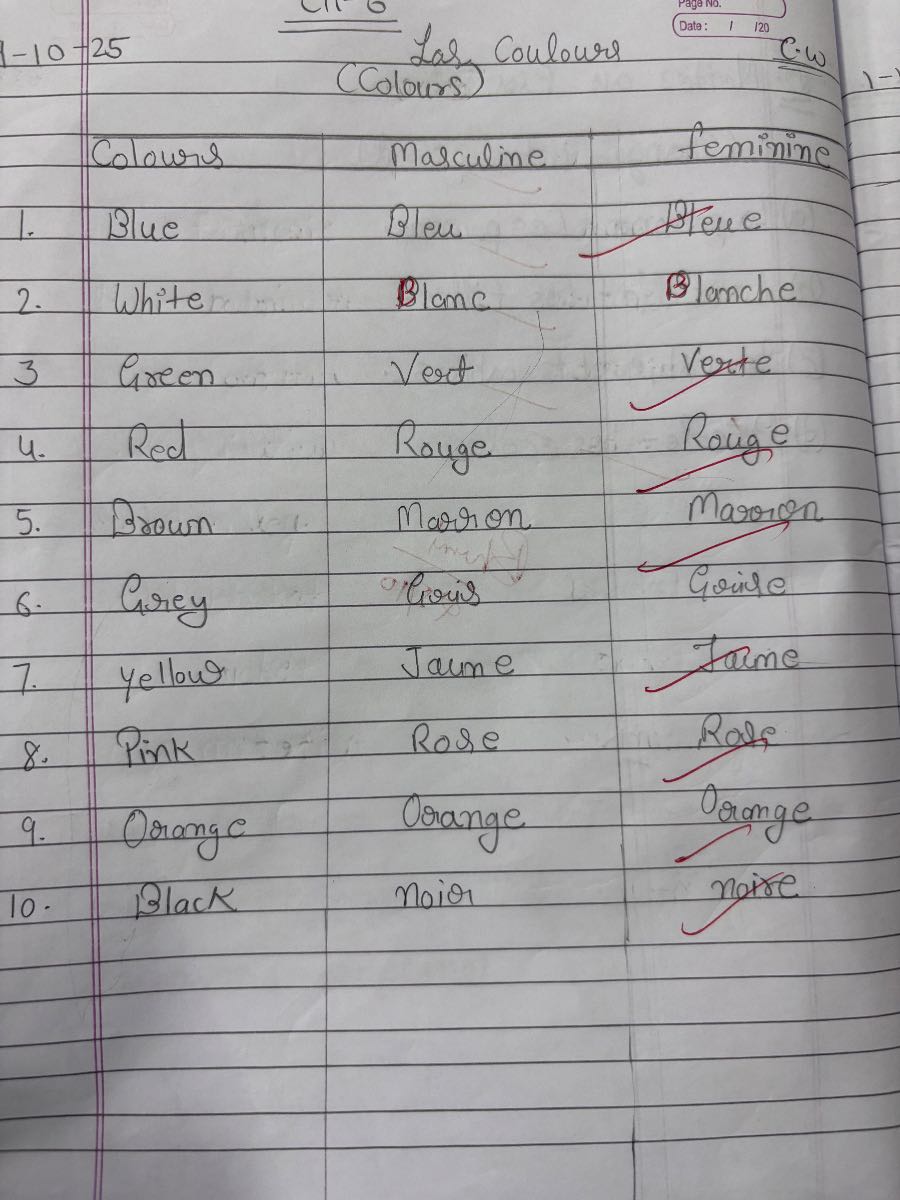 CH-6
Page No.
Date: / /20
1-10-25 Las Coulours C.W
(Colours)
Colours Masculine feminine
1. Blue Bleu Bleue
2. White Blanc Blanche
3 Green Vert Verte
4. Red Rouge Rouge
5. Brown Marron Marron
6. Grey Gris Grise
7. Yellow Jaune Jaune
8. Pink Rose Rose
9. Orange Orange Orange
10. Black noir noire